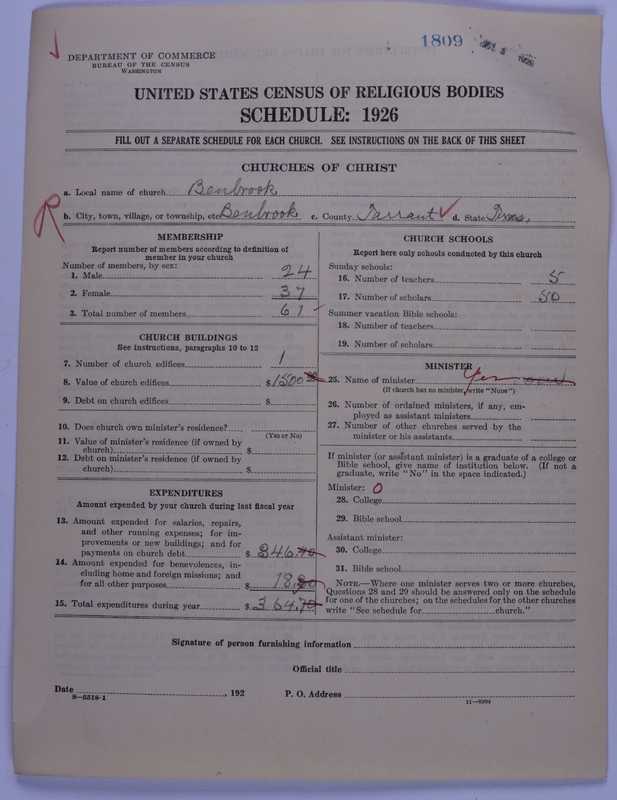 1809
DEPARTMENT OF COMMERCE
BUREAU OF THE CENSUS
WASHINGTON
UNITED STATES CENSUS OF RELIGIOUS BODIES
SCHEDULE: 1926
FILL OUT A SEPARATE SCHEDULE FOR EACH CHURCH. SEE INSTRUCTIONS ON THE BACK OF THIS SHEET
CHURCHES OF CHRIST
a. Local name of church Benbrook
b. City, town, village, or township, etc. Benbrook c. County Tarrant d. State Texas.
R
MEMBERSHIP
Report number of members according to definition of
member in your church
Number of members, by sex:
1. Male 24
2. Female 37
3. Total number of members 61
CHURCH BUILDINGS
See instructions, paragraphs 10 to 12
7. Number of church edifices 1
8. Value of church edifices $1500 00
9. Debt on church edifices $
10. Does church own minister's residence?
(Yes or No)
11. Value of minister's residence (if owned by
church) $
12. Debt on minister's residence (if owned by
church) $
EXPENDITURES
Amount expended by your church during last fiscal year
13. Amount expended for salaries, repairs,
and other running expenses; for im-
provements or new buildings; and for
payments on church debt $ 346.40
14. Amount expended for benevolences, in-
cluding home and foreign missions; and
for all other purposes $ 18.30
15. Total expenditures during year $ 364.70
CHURCH SCHOOLS
Report here only schools conducted by this church
Sunday schools:
16. Number of teachers 5
17. Number of scholars 50
Summer vacation Bible schools:
18. Number of teachers
19. Number of scholars
MINISTER
25. Name of minister Yes
(If church has no minister, write "None")
26. Number of ordained ministers, if any, em-
ployed as assistant ministers
27. Number of other churches served by the
minister or his assistants
If minister (or assistant minister) is a graduate of a college or
Bible school, give name of institution below. (If not a
graduate, write "No" in the space indicated.)
Minister: 0
28. College
29. Bible school
Assistant minister:
30. College
31. Bible school
NOTE.—Where one minister serves two or more churches,
Questions 28 and 29 should be answered only on the schedule
for one of the churches; on the schedules for the other churches
write "See schedule for church."
Signature of person furnishing information
Official title
Date , 192 P. O. Address
8—5518-1
11—9204